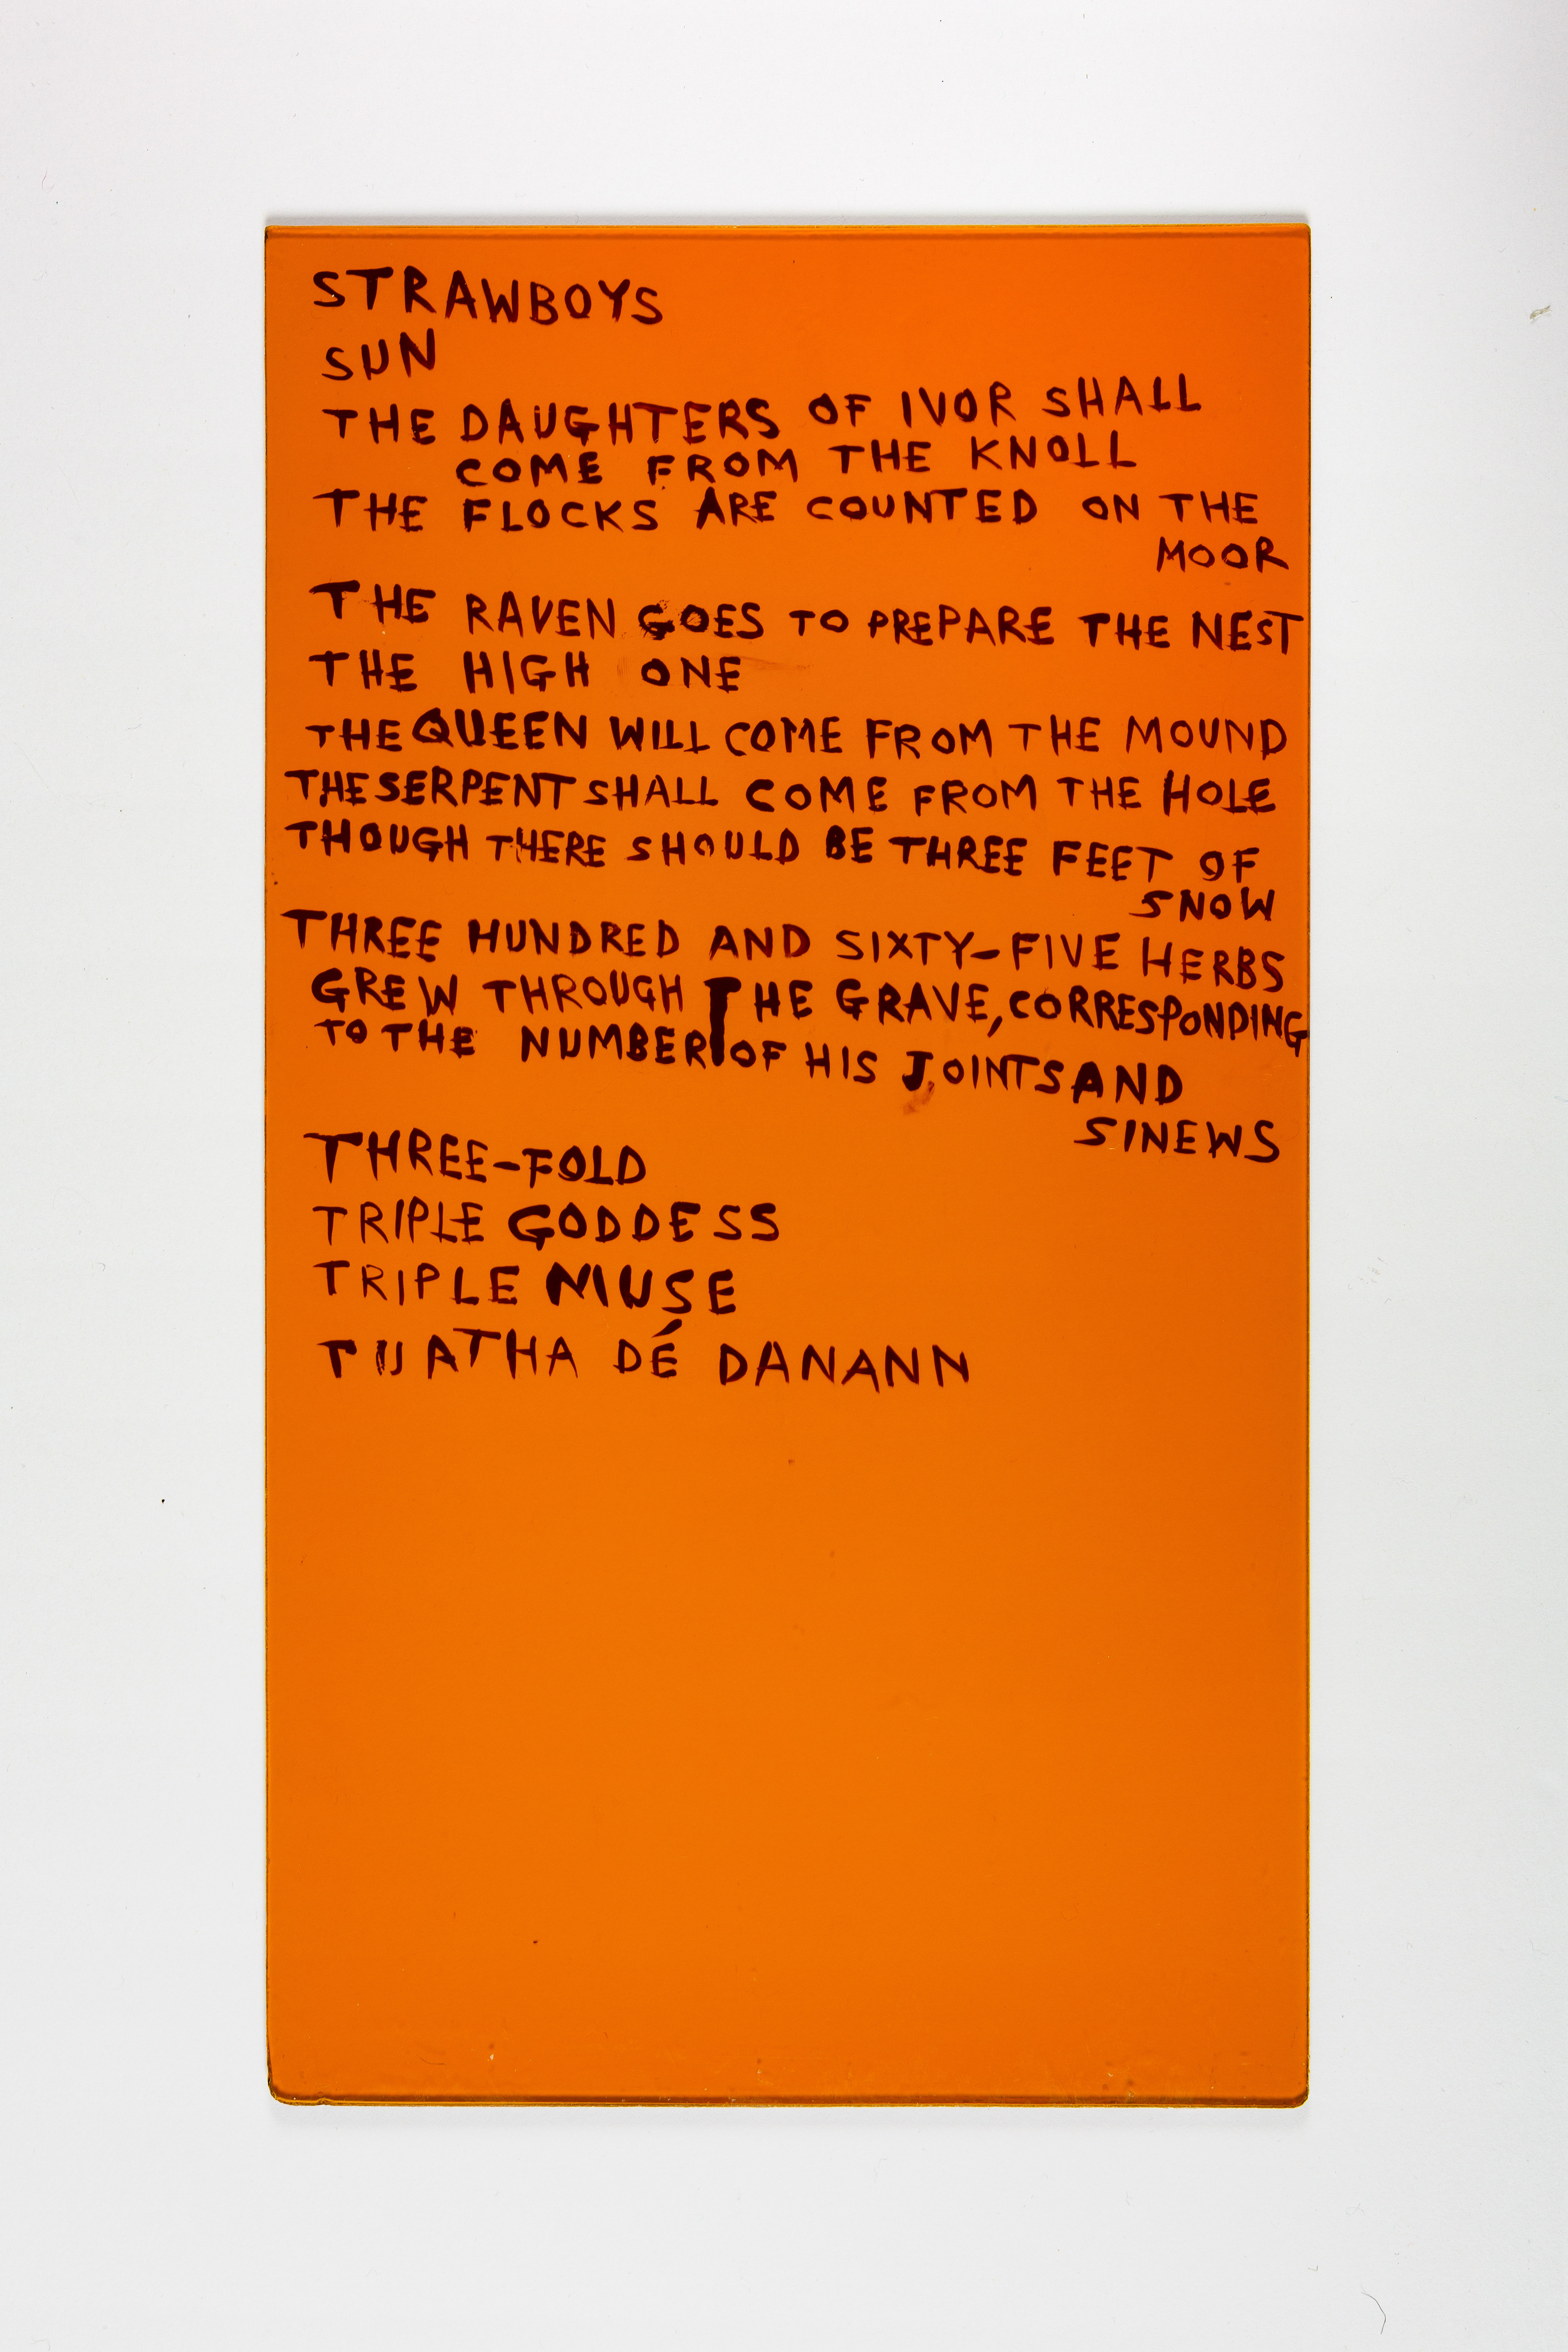 STRAWBOYS
SUN
THE DAUGHTERS OF IVOR SHALL
COME FROM THE KNOLL
THE FLOCKS ARE COUNTED ON THE
MOOR
THE RAVEN GOES TO PREPARE THE NEST
THE HIGH ONE
THE QUEEN WILL COME FROM THE MOUND
THE SERPENT SHALL COME FROM THE HOLE
THOUGH THERE SHOULD BE THREE FEET OF
SNOW
THREE HUNDRED AND SIXTY-FIVE HERBS
GREW THROUGH THE GRAVE, CORRESPONDING
TO THE NUMBER OF HIS JOINTS AND
SINEWS
THREE-FOLD
TRIPLE GODDESS
TRIPLE MUSE
TUATHA DÉ DANANN